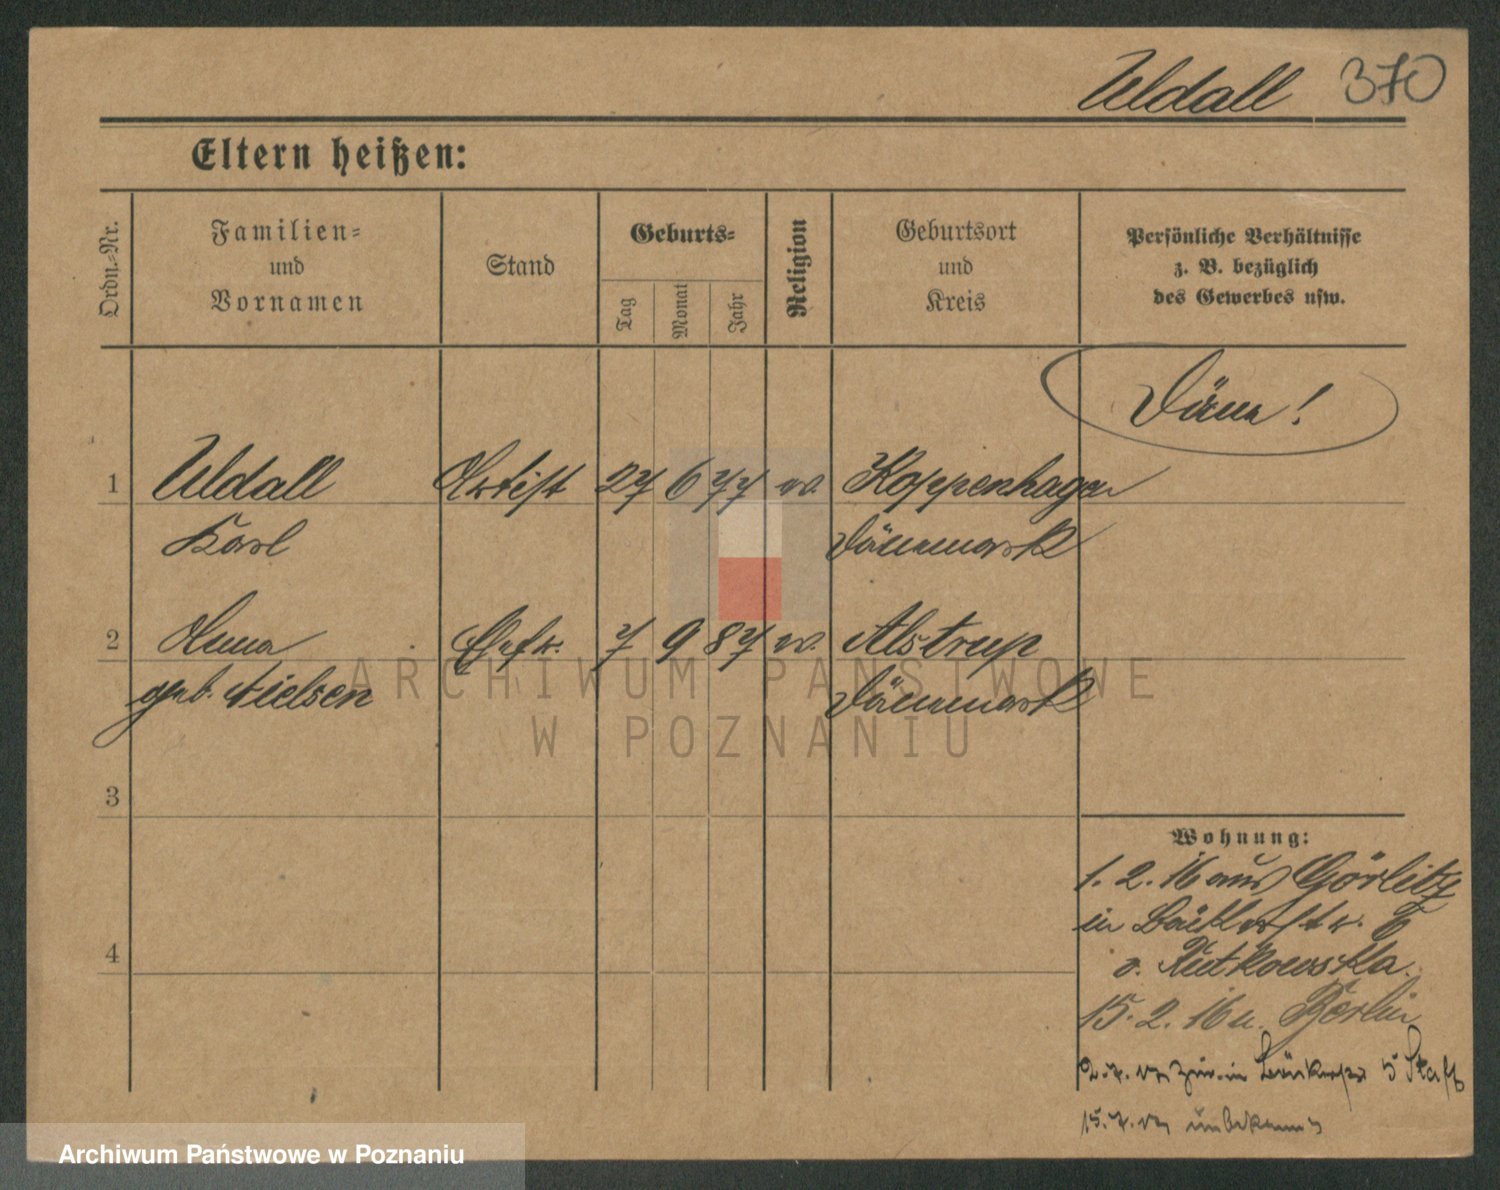 Uldall 370
Eltern heißen:
Ordn.-Nr.
Familien-
und
Vornamen
Stand
Geburts-
Tag
Monat
Jahr
Religion
Geburtsort
und
Kreis
Persönliche Verhältnisse
z. B. bezüglich
des Gewerbes usw.
Däne!
1 Uldall Artist 27 6 77 ev. Koppenhagen
Karl Dänemark
2 Anna Ehefr. 7 9 87 ev. Alstrup
geb. Nielsen Dänemark
3
4
Wohnung:
1. 2. 16 aus Görlitz
in
Rutkowska.
15. 2. 16 n. Berlin
5
15. 7. unbekannt
ARCHIWUM PAŃSTWOWE
W POZNANIU
Archiwum Państwowe w Poznaniu